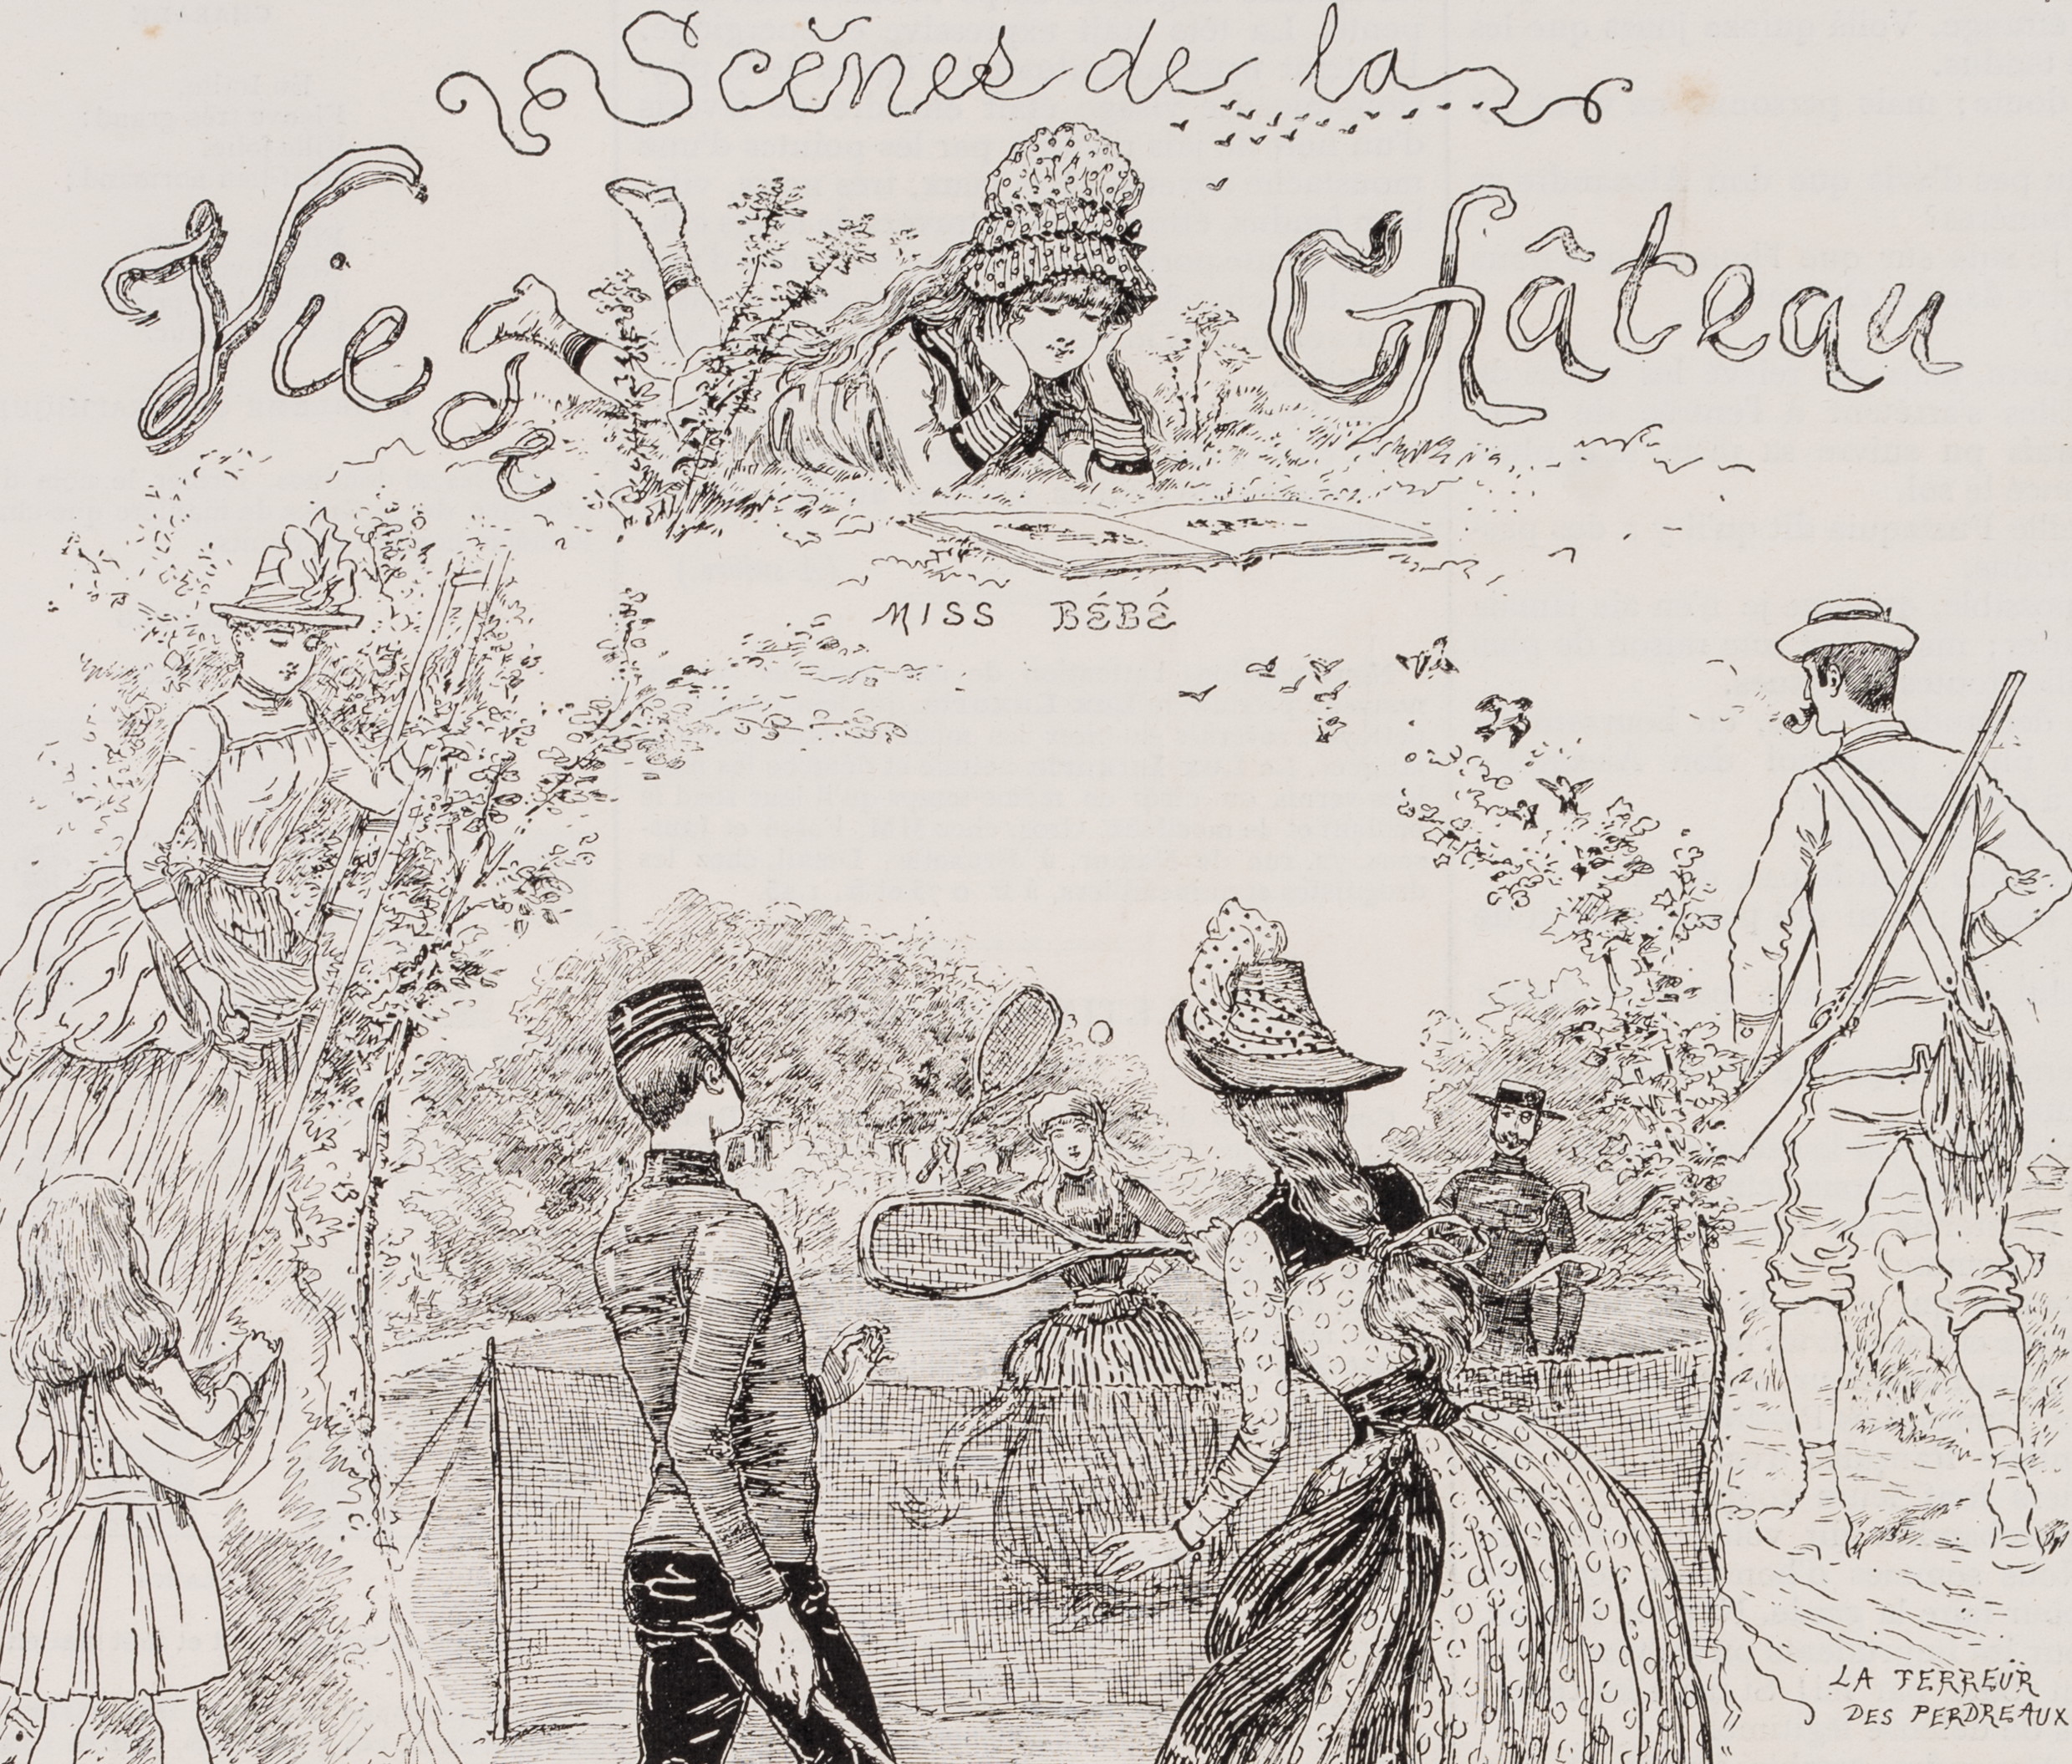 Scènes de la
Vie de Château
MISS BÉBÉ
LA TERREUR
DES PERDREAUX